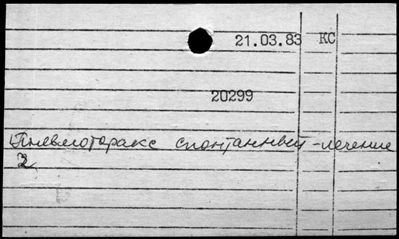 21.03.83 КС
20299
Пневмоторакс спонтанный - лечение
2